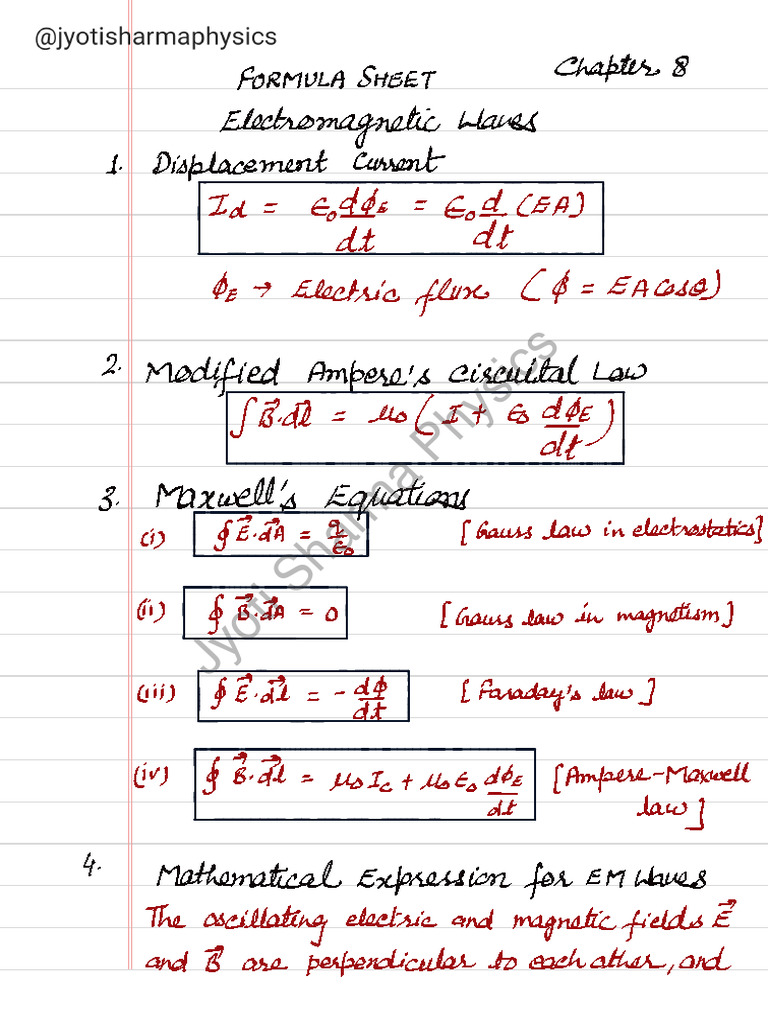 @jyotisharmaphysics
Chapter 8
FORMULA SHEET
Electromagnetic Waves
1. Displacement Current
I_d = ε₀ dϕ_E/dt = ε₀ d/dt (EA)
ϕ_E → Electric flux (ϕ = EA cosθ)
2. Modified Ampere's Circuital Law
∫ B⃗.dl⃗ = μ₀ ( I + ε₀ dϕ_E/dt )
3. Maxwell's Equations
(i) ∮ E⃗.dA⃗ = q/ε₀ [Gauss law in electrostatics]
(ii) ∮ B⃗.dA⃗ = 0 [Gauss law in magnetism]
(iii) ∮ E⃗.dl⃗ = - dϕ/dt [Faraday's law]
(iv) ∮ B⃗.dl⃗ = μ₀ I_c + μ₀ ε₀ dϕ_E/dt [Ampere-Maxwell
law]
4. Mathematical Expression for EM Waves
The oscillating electric and magnetic fields E⃗
and B⃗ are perpendicular to each other, and
Jyoti Sharma Physics